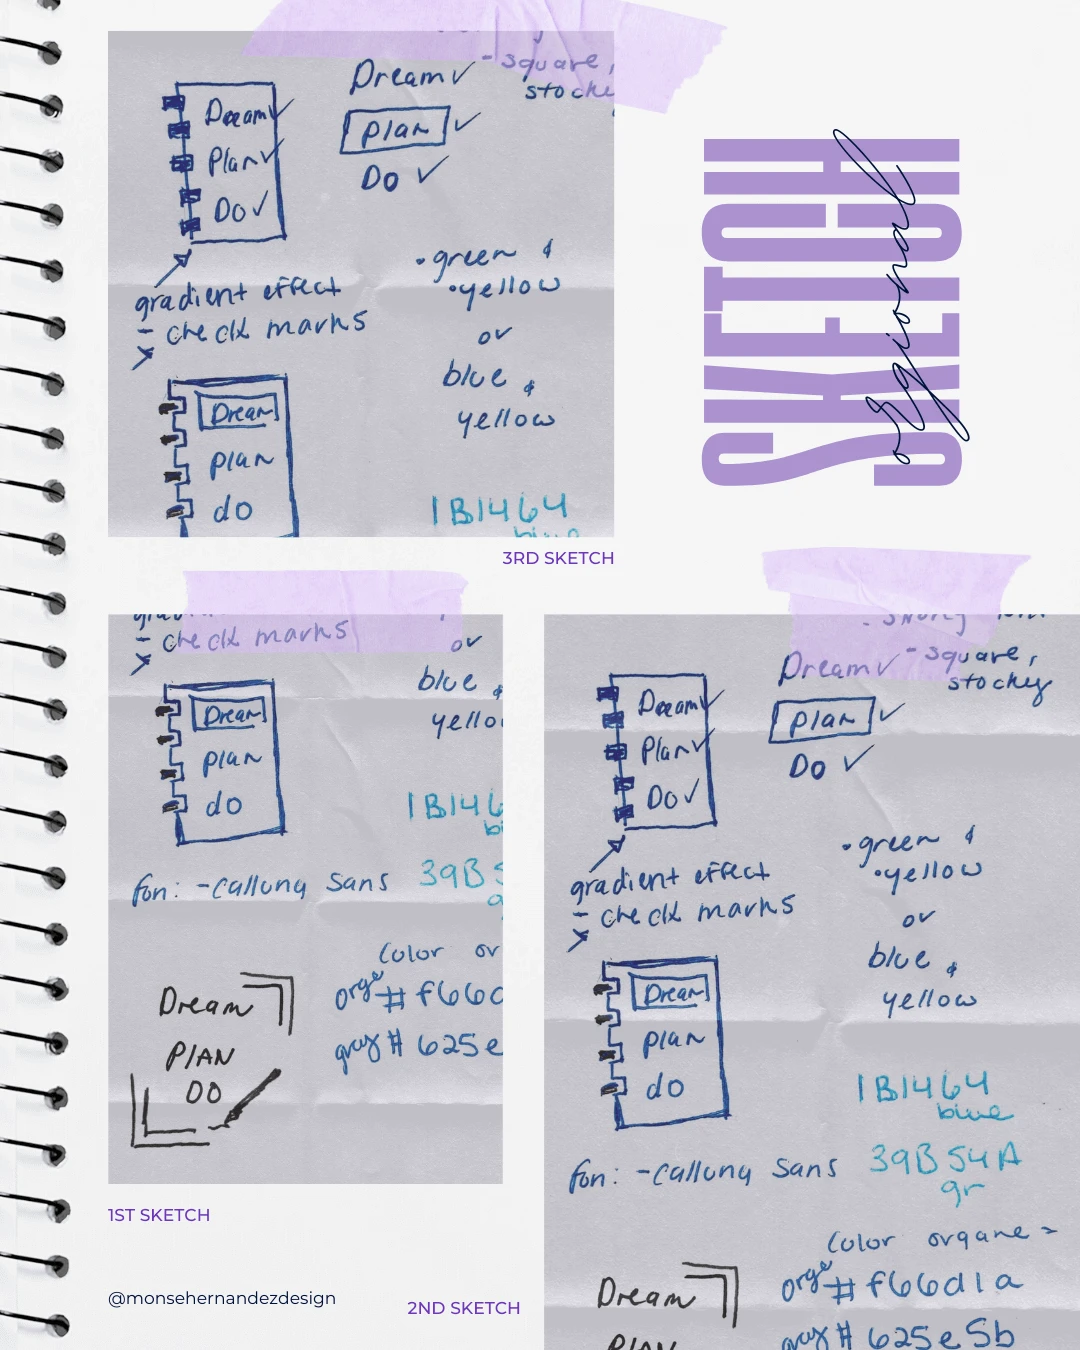 - square,
stocky
Dream ✓
Plan ✓
Do ✓
Dream ✓
Plan ✓
Do ✓
gradient effect
- check marks
>
• green &
• yellow
or
blue &
yellow
Dream
plan
do
1B1464
blue
3RD SKETCH
SKETCH
orgional
- check marks
>
or
blue &
yello
Dream
plan
do
1B146
fon: - calluna Sans
39B5
Color or
orge # f66d
gray # 625e
Dream
PLAN
DO
1ST SKETCH
@monsehernandezdesign
- square,
stocky
Dream ✓
Plan ✓
Do ✓
Dream ✓
Plan ✓
Do ✓
gradient effect
- check marks
>
• green &
• yellow
or
blue &
yellow
Dream
plan
do
1B1464
blue
fon: - calluna Sans
39B54A
gr
Color organe =
orge # f66d1a
gray # 625e5b
Dream
PLAN
2ND SKETCH